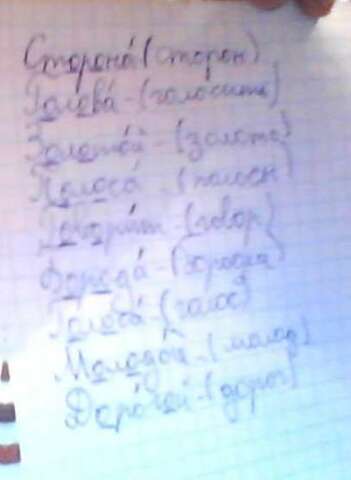 Сторона́ (сторон)
Голова́ - (голосить)
Золото́й - (золото)
Полоса́ - (полоск)
Говори́т - (говор)
Борода́ -
Голова́ - (голос)
Молодо́й - (молод)
Дорого́й - (дорог)